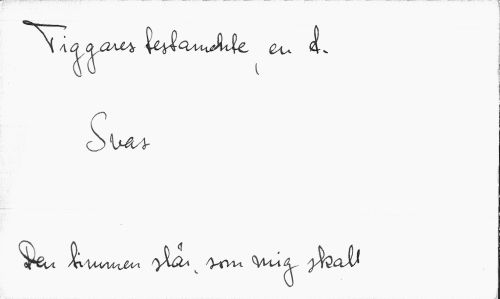 Tiggares testamente, en d.
Svas
Den timmen slår, som mig skall